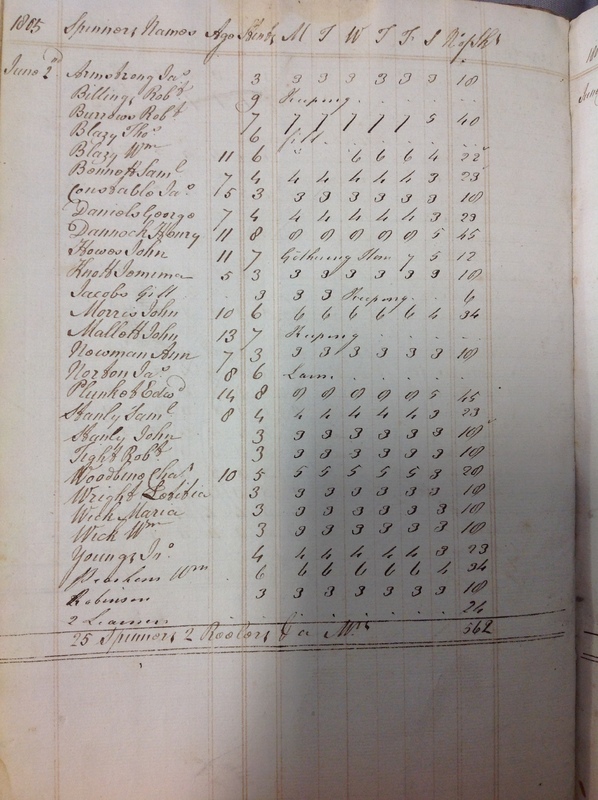 1805 Spinners Names Age Skeins M T W T F S No Sks
June 2d Armstrong Jas 3 3 3 3 3 3 3 18
Billings Robt 9 Reeping
Burrows Robt 7 7 7 7 7 7 5 40
Blazy Thos 6
Blazy Wm 11 6 " 6 6 6 4 22
Bennett Saml 7 4 4 4 4 4 4 3 23
Constable Jas 15 3 3 3 3 3 3 3 18
Daniels George 7 4 4 4 4 4 4 3 23
Dannock Henry 11 8 8 8 8 8 8 5 45
Howes John 11 7 Gethering 7 5 12
Knott Jemima 5 3 3 3 3 3 3 3 18
Jacobs Gill 3 3 3 Reeping 6
Morris John 10 6 6 6 6 6 6 4 34
Mallett John 13 7 Reeping
Newman Ann 7 3 3 3 3 3 3 3 18
Norton Jas 8 6
Plunket Edwd 14 8 8 8 8 8 8 5 45
Stanly Saml 8 4 4 4 4 4 4 3 23
Stanly John 3 3 3 3 3 3 3 18
Tight Robt 3 3 3 3 3 3 3 18
Woodbine Chas 10 5 5 5 5 5 5 3 28
Wright Letitia 3 3 3 3 3 3 3 18
Wick Maria 3 3 3 3 3 3 3 18
Wick Wm 3 3 3 3 3 3 3 18
Youngs Jno 4 4 4 4 4 4 3 23
Wm 6 6 6 6 6 6 4 34
Robinson 3 3 3 3 3 3 3 18
2 Learners 24
25 Spinners 2 Reelers 562